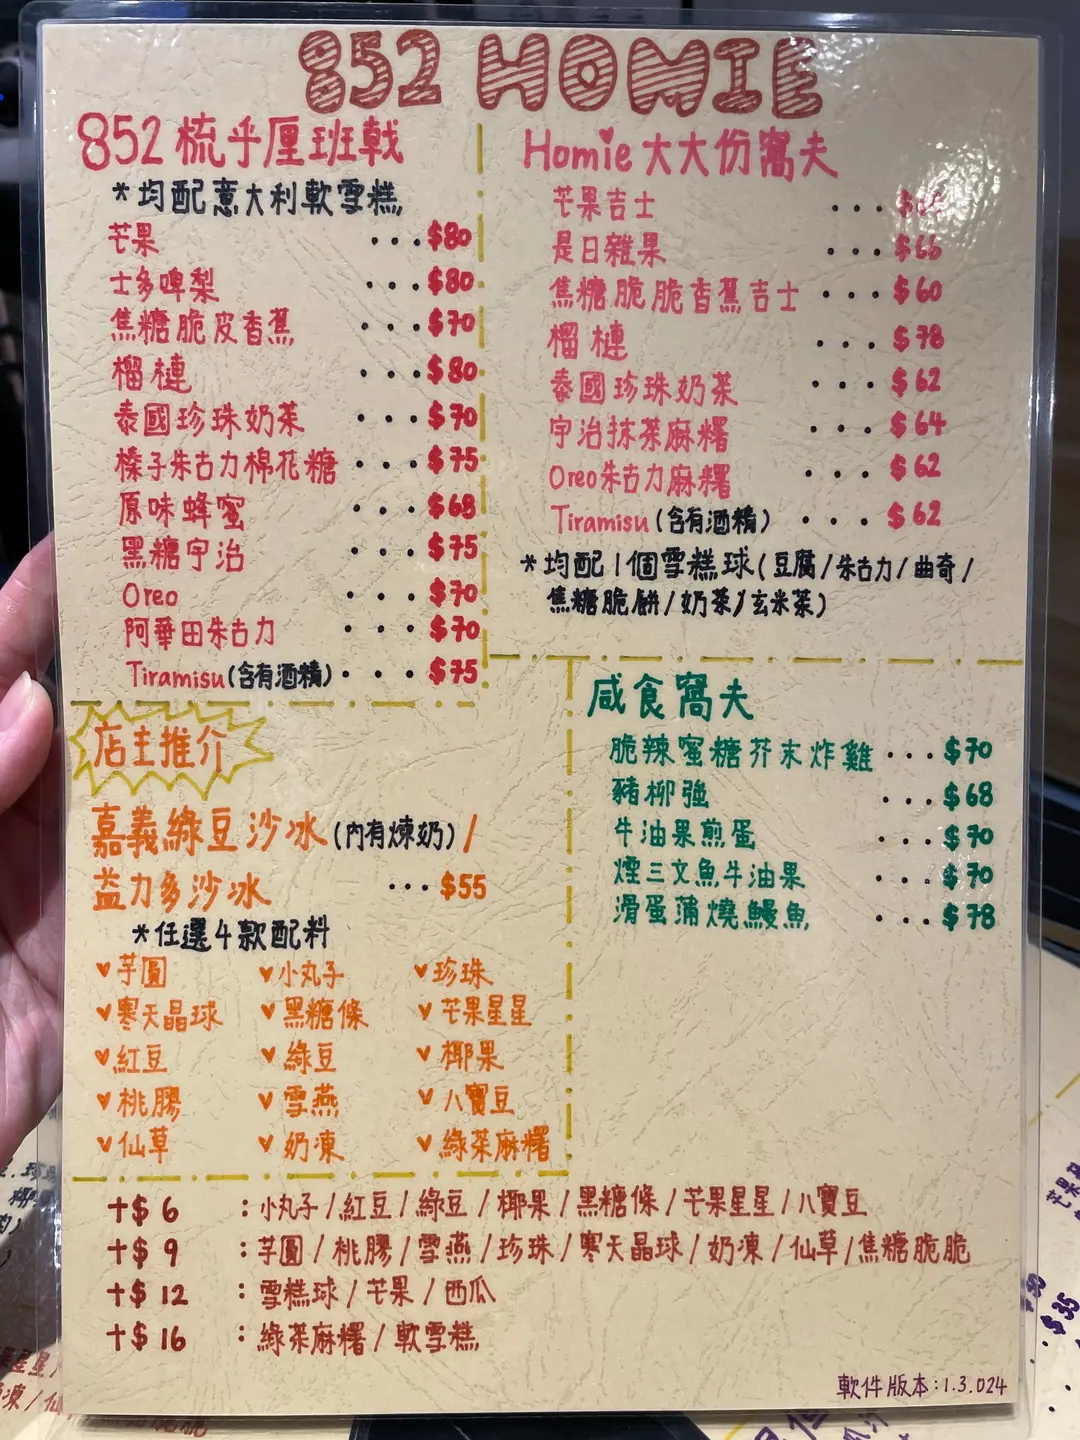 852 HOMIE
852 梳乎厘班戟
*均配意大利軟雪糕
芒果 ...$80
士多啤梨 ...$80
焦糖脆皮香蕉 ...$70
榴槤 ...$80
泰國珍珠奶茶 ...$70
榛子朱古力棉花糖 ...$75
原味蜂蜜 ...$68
黑糖宇治 ...$75
Oreo ...$70
阿華田朱古力 ...$70
Tiramisu(含有酒精)...$75
Homie大大份窩夫
芒果吉士 ...
是日雜果 ...$66
焦糖脆脆香蕉吉士 ...$60
榴槤 ...$78
泰國珍珠奶茶 ...$62
宇治抹茶麻糬 ...$64
Oreo朱古力麻糬 ...$62
Tiramisu(含有酒精) ...$62
*均配1個雪糕球(豆腐/朱古力/曲奇/
焦糖脆餅/奶茶/玄米茶)
咸食窩夫
脆辣蜜糖芥末炸雞...$70
豬柳強 ...$68
牛油果煎蛋 ...$70
煙三文魚牛油果 ...$70
滑蛋蒲燒鰻魚 ...$78
店主推介
嘉義綠豆沙冰(內有煉奶)/
益力多沙冰 ...$55
*任選4款配料
芋圓 小丸子 珍珠
寒天晶球 黑糖條 芒果星星
紅豆 綠豆 椰果
桃膠 雪燕 八寶豆
仙草 奶凍 綠茶麻糬
+$6 :小丸子/紅豆/綠豆/椰果/黑糖條/芒果星星/八寶豆
+$9 :芋圓/桃膠/雪燕/珍珠/寒天晶球/奶凍/仙草/焦糖脆脆
+$12 :雪糕球/芒果/西瓜
+$16 :綠茶麻糬/軟雪糕
軟件版本:1.3.024
$35